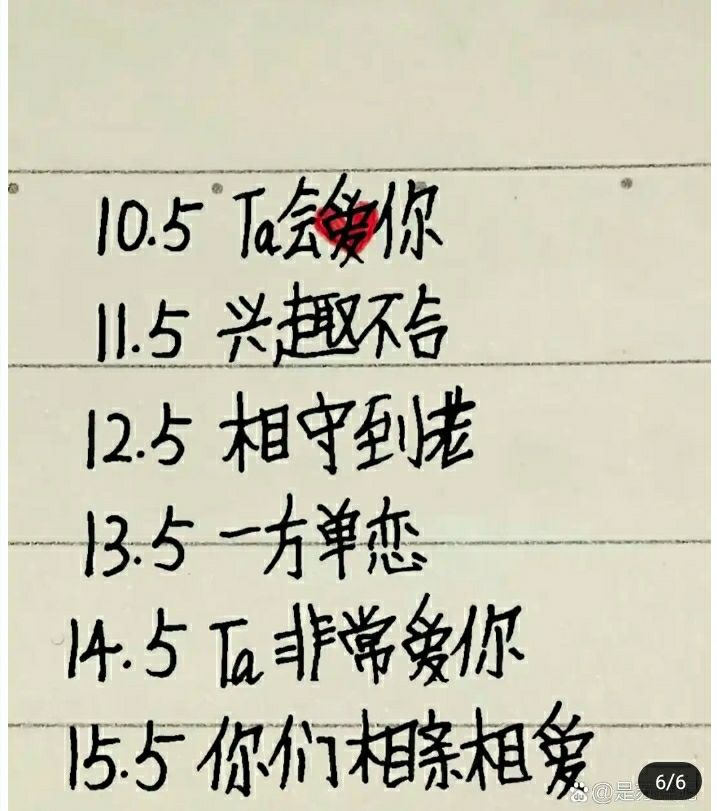 10.5 Ta会爱你
11.5 兴趣不合
12.5 相守到老
13.5 一方单恋
14.5 Ta非常爱你
15.5 你们相亲相爱
@是
6/6